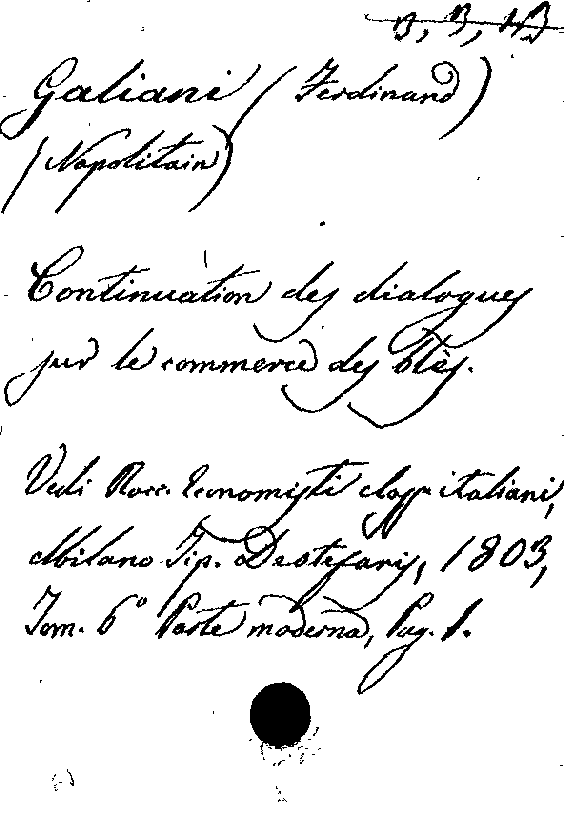 Galiani (Ferdinand)
(Napolitain)
Continuation des dialogues
sur le commerce des blès.
Vedi Racc. Economisti class. italiani,
Milano Tip. Destefanis, 1803,
Tom. 6° Parte moderna, Pag. 1.